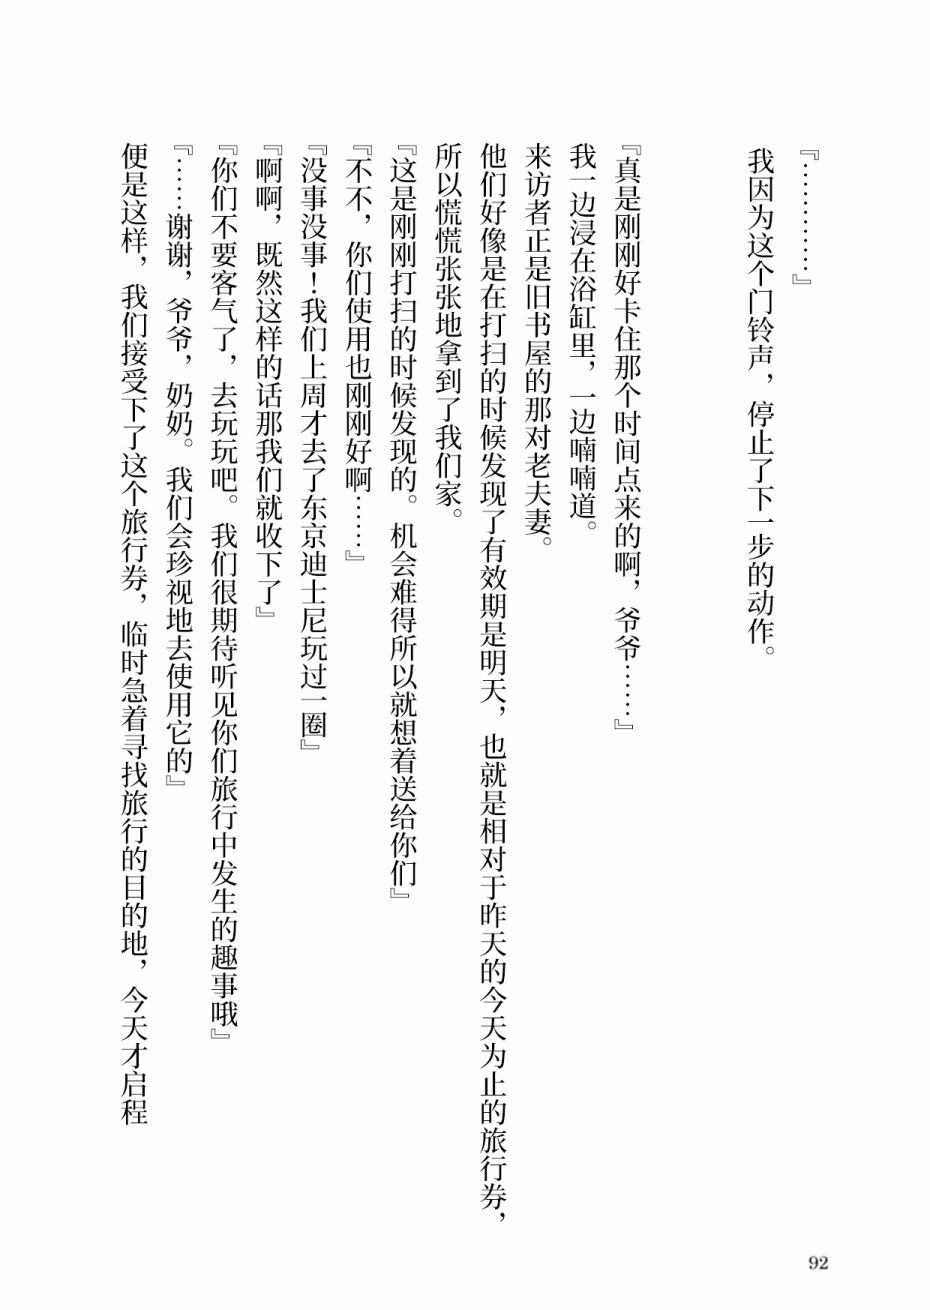 『…………』
我因为这个门铃声，停止了下一步的动作。
『真是刚刚好卡住那个时间点来的啊，爷爷……』
我一边浸在浴缸里，一边喃喃道。
来访者正是旧书屋的那对老夫妻。
他们好像是在打扫的时候发现了有效期是明天，也就是相对于昨天的今天为止的旅行券，
所以慌慌张张地拿到了我们家。
『这是刚刚打扫的时候发现的。机会难得所以就想着送给你们』
『不不，你们使用也刚刚好啊……』
『没事没事！我们上周才去了东京迪士尼玩过一圈』
『啊啊，既然这样的话那我们就收下了』
『你们不要客气了，去玩玩吧。我们很期待听见你们旅行中发生的趣事哦』
『……谢谢，爷爷，奶奶。我们会珍视地去使用它的』
便是这样，我们接受下了这个旅行券，临时急着寻找旅行的目的地，今天才启程
92